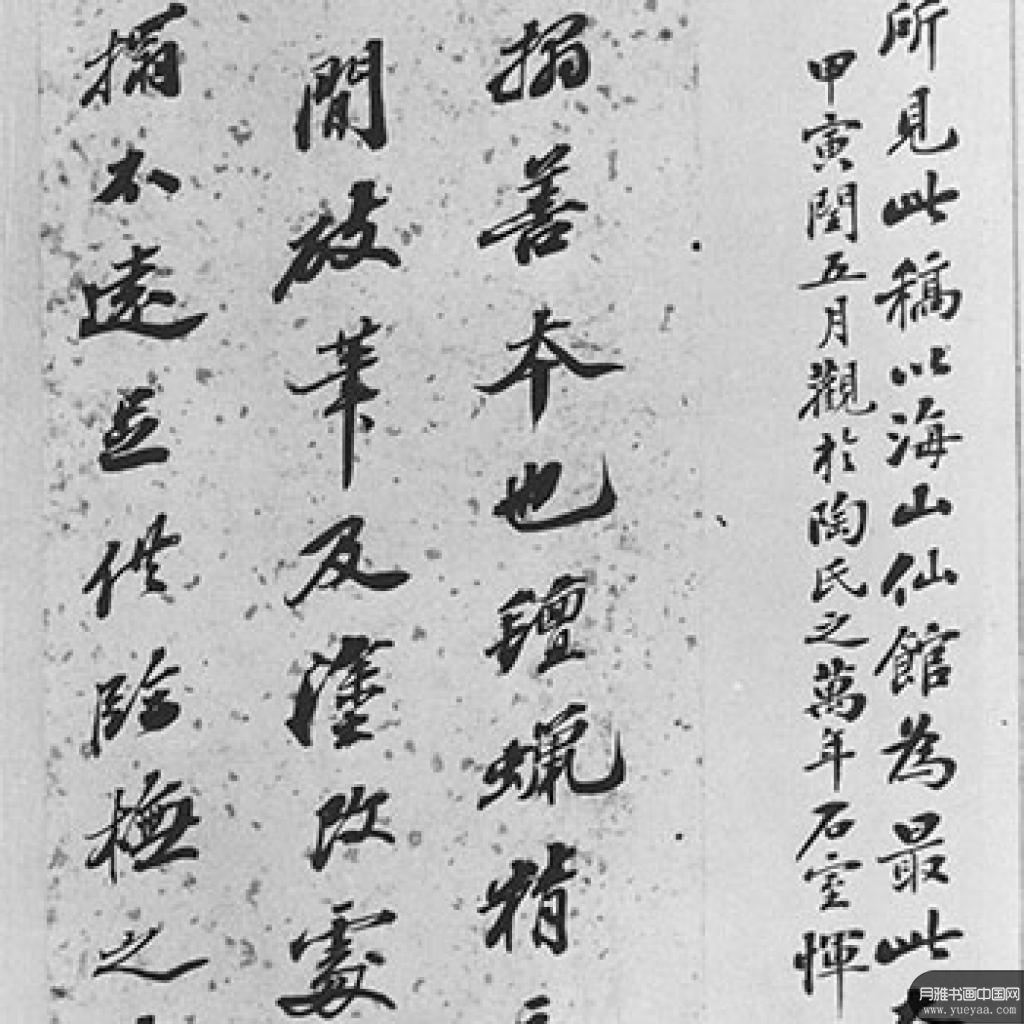 所見此稿以海山仙館為最此
甲寅閏五月觀於陶氏之萬年石室惲
搨善本也氊蠟精
間放筆及塗改處
搨不遠足供臨橅之
月雅书画中国网
www.yueyaa.com